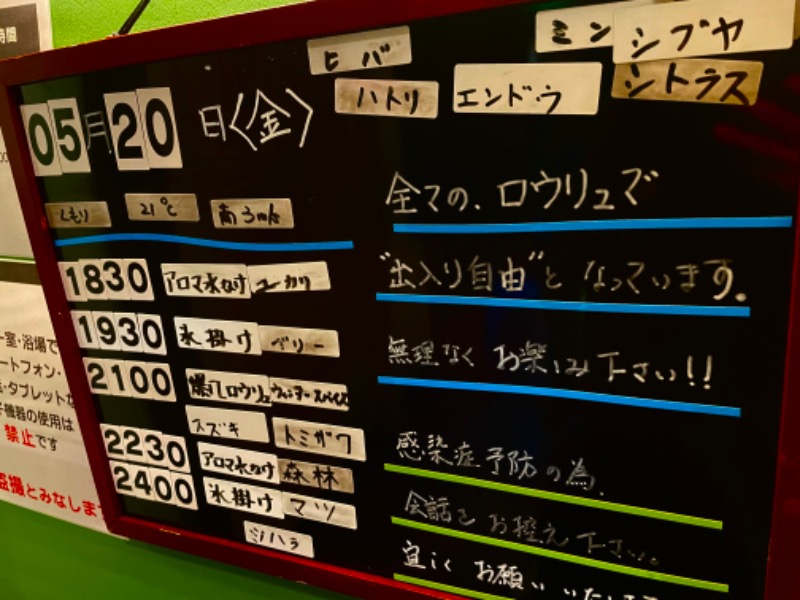 時間
ヒバ
ミン シブヤ
ハトリ エンドウ シトラス
05月20日〈金〉
くもり 21℃ 南3m/s
1830 アロマ水かけ ユーカリ
1930 氷掛け ベリー
2100 爆風ロウリュ ウィンタースパイス
スズキ トミザワ
2230 アロマ水かけ 森林
2400 氷掛け マツ
シハラ
全ての、ロウリュで
"出入り自由"と なっています。
無理なく お楽しみ下さい!!
感染症予防の為、
会話を お控え下さい。
宜しく お願い いたします
室・浴場で
ートフォン・
・タブレット
機器の使用は
禁止です
盗撮とみなしま